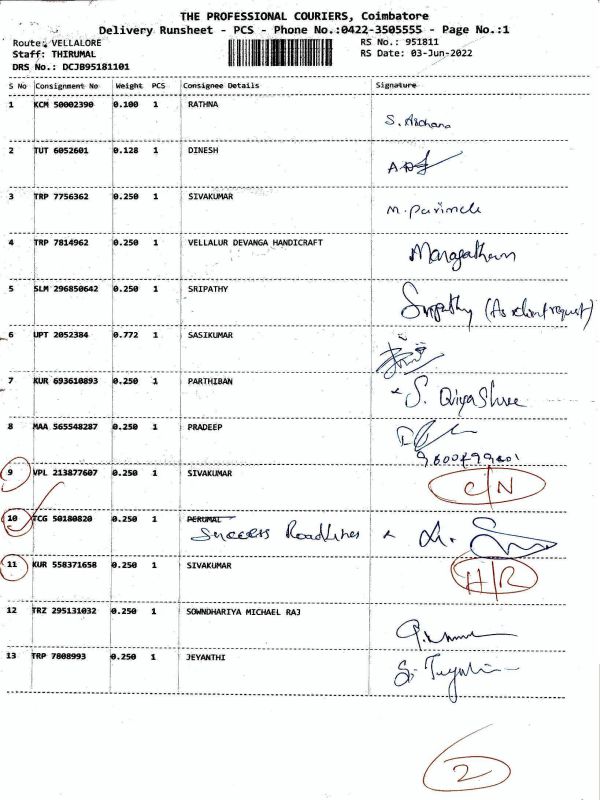 THE PROFESSIONAL COURIERS, Coimbatore
Delivery Runsheet - PCS - Phone No.:0422-3505555 - Page No.:1
Route: VELLALORE RS No.: 951811
Staff: THIRUMAL RS Date: 03-Jun-2022
DRS No.: DCJB95181101
S No Consignment No Weight PCS Consignee Details Signature
1 KCM 50002390 0.100 1 RATHNA
S. Archana
2 TUT 6052601 0.128 1 DINESH
3 TRP 7756362 0.250 1 SIVAKUMAR
4 TRP 7814962 0.250 1 VELLALUR DEVANGA HANDICRAFT
Maragatham
5 SLM 296850642 0.250 1 SRIPATHY
Sripathy (As client request)
6 UPT 2052384 0.772 1 SASIKUMAR
7 KUR 693610893 0.250 1 PARTHIBAN
8 MAA 565548287 0.250 1 PRADEEP
9 VPL 213877607 0.250 1 SIVAKUMAR
C/N
10 TCG 50180820 0.250 1 PERUMAL
Success Roadlines
11 KUR 558371658 0.250 1 SIVAKUMAR
H/R
12 TRZ 295131032 0.250 1 SOWNDHARIYA MICHAEL RAJ
13 TRP 7808993 0.250 1 JEYANTHI
2